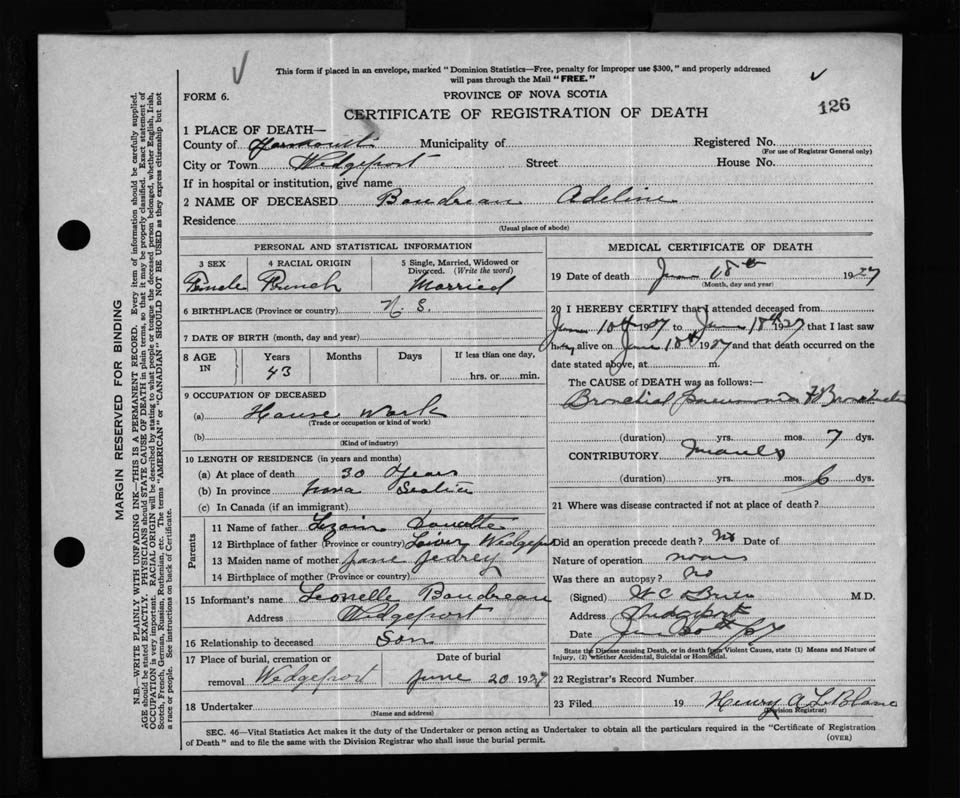 This form if placed in an envelope, marked "Dominion Statistics—Free, penalty for improper use $300," and properly addressed
will pass through the Mail "FREE."
FORM 6.
PROVINCE OF NOVA SCOTIA
126
CERTIFICATE OF REGISTRATION OF DEATH
1 PLACE OF DEATH—
County of Yarmouth Municipality of Registered No.
(For use of Registrar General only)
City or Town Wedgeport Street House No.
If in hospital or institution, give name
2 NAME OF DECEASED Boudreau Adeline
Residence
(Usual place of abode)
PERSONAL AND STATISTICAL INFORMATION
3 SEX 4 RACIAL ORIGIN 5 Single, Married, Widowed or
Divorced. (Write the word)
Female French Married
6 BIRTHPLACE (Province or country) N. S.
7 DATE OF BIRTH (month, day and year)
8 AGE IN Years Months Days If less than one day,
43 hrs. or min.
9 OCCUPATION OF DECEASED
(a) House Work
(Trade or occupation or kind of work)
(b)
(Kind of industry)
10 LENGTH OF RESIDENCE (in years and months)
(a) At place of death 30 Years
(b) In province Nova Scotia
(c) In Canada (if an immigrant)
Parents
11 Name of father Doucette
12 Birthplace of father (Province or country) Lower Wedgeport
13 Maiden name of mother Jane Jedrey
14 Birthplace of mother (Province or country)
15 Informant's name Leonelle Boudreau
Address Wedgeport
16 Relationship to deceased Son
17 Place of burial, cremation or Date of burial
removal Wedgeport June 20 1927
18 Undertaker
(Name and address)
MEDICAL CERTIFICATE OF DEATH
19 Date of death June 18th 1927
(Month, day and year)
20 I HEREBY CERTIFY that I attended deceased from
June 10th 1927 to June 18th 1927 that I last saw
alive on June 18th 1927 and that death occurred on the
date stated above, at m.
The CAUSE of DEATH was as follows:—
Bronchial Pneumonia
(duration) yrs. mos. 7 dys.
CONTRIBUTORY Measles
(duration) yrs. mos. 6 dys.
21 Where was disease contracted if not at place of death?
Did an operation precede death? No Date of
Nature of operation
Was there an autopsy? No
(Signed) W C O'Brien M.D.
Address Wedgeport
Date June 20th /27
State the Disease causing Death, or in death from Violent Causes, state (1) Means and Nature of
Injury, (2) whether Accidental, Suicidal or Homicidal.
22 Registrar's Record Number
23 Filed 19 Henry A LeBlanc
(Division Registrar)
SEC. 46—Vital Statistics Act makes it the duty of the Undertaker or person acting as Undertaker to obtain all the particulars required in the "Certificate of Registration
of Death" and to file the same with the Division Registrar who shall issue the burial permit.
(OVER)
MARGIN RESERVED FOR BINDING
N.B.—WRITE PLAINLY WITH UNFADING INK—THIS IS A PERMANENT RECORD. Every item of information should be carefully supplied.
AGE should be stated EXACTLY. PHYSICIANS should STATE CAUSE OF DEATH in plain terms, so that it may be properly classified. Exact statement of
OCCUPATION is very important. RACIAL ORIGIN will be described by stating to what people or tongue the deceased person belonged, whether English, Irish,
Scotch, French, German, Russian, Ruthenian, etc. The terms "AMERICAN" or "CANADIAN" SHOULD NOT BE USED as they express citizenship but not
a race or people. See instructions on back of Certificate.